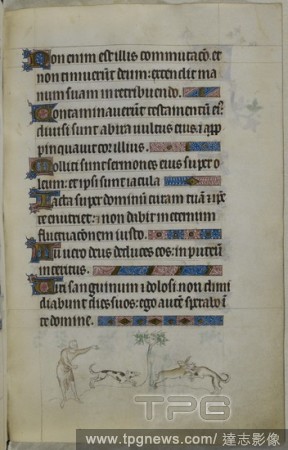 Non enim est illis commutacō. et
non timuerūt deum: extendit ma
num suam in retribuendo.
Contaminauerūt testamentū eiꝰ
diuisi sunt ab ira uultus eius: ⁊ app
pinquauit cor illius.
Molliti sunt sermones eius super o
leum: et ipsi sunt iacula
Iacta super dominū curam tuā ⁊ ip̄e
te enutriet: non dabit in eternum
fluctuacōnem iusto.
Tu uero deus deduces eos: in puteū
interitus.
Uiri sanguinum ⁊ dolosi non dimi
diabunt dies suos: ego autē sperabo ī
te domine.
TPG
www.tpgnews.com/ 達志影像